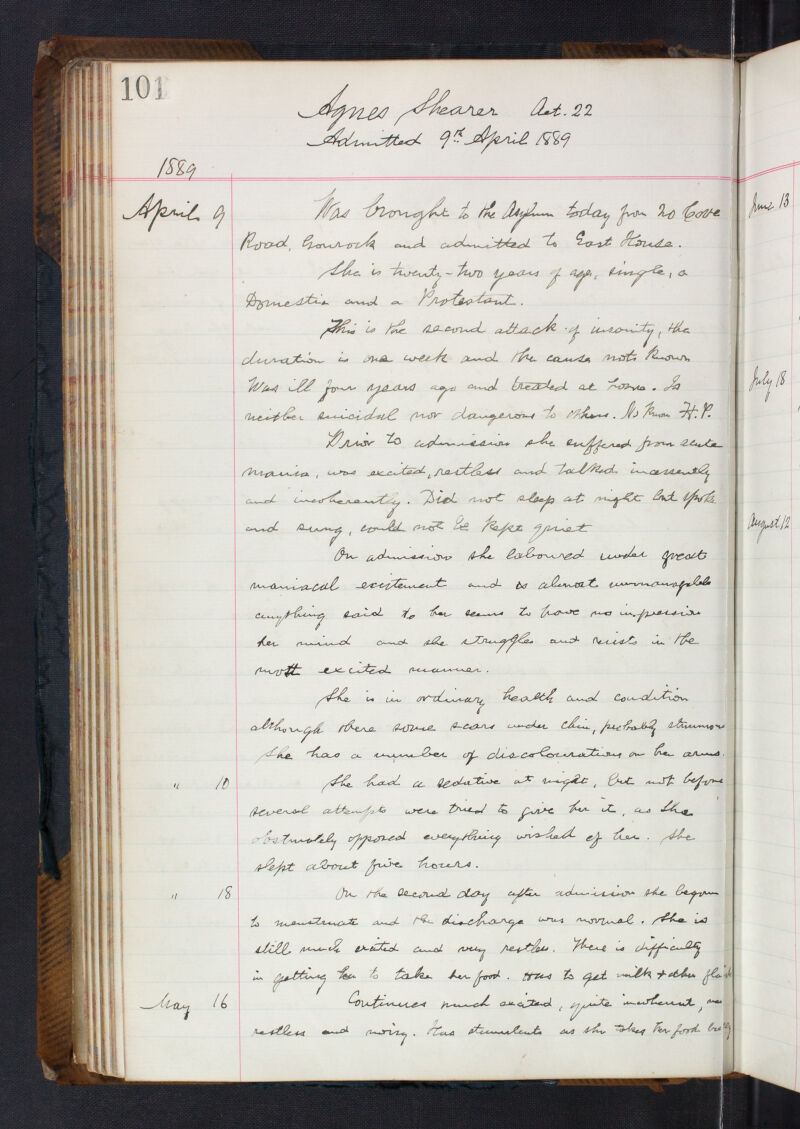 101
Agnes Shearer Aet. 22
Admitted 9th April 1889
1889
April 9 Was brought to the Asylum today from 20 Cove
Road, Gourock and admitted to East House.
She is twenty-two years of age, single, a
Domestic and a Protestant.
This is the second attack of insanity, the
duration is one week and the cause not known
Was ill four years ago and treated at home. Is
neither suicidal nor dangerous to others. No known H.P.
Prior to admission she suffered from acute
mania, was excited, restless and talked incessantly
and incoherently. Did not sleep at night but spoke
and sung, could not be kept quiet
On admission she laboured under great
maniacal excitement and is almost unmanageable
anything said to her seems to have no impression
her mind and she struggles and resists in the
most excited manner.
She is in ordinary health and condition
although there some scars under chin, probably strumous
She has a number of discolourations on her arms.
" 10 She had a sedative at night, but not before
several attempts were tried to give her it, as she
obstinately opposed everything wished of her. She
slept about five hours.
" 18 On the second day after admission she began
to menstruate and the discharge was normal. She is
still much excited and very restless. There is difficulty
in getting her to take her food. Has to get milk & other
May 16 Continues much excited, quite incoherent,
restless and noisy. Has stimulants as she takes her food
June 13
July 18
August 12